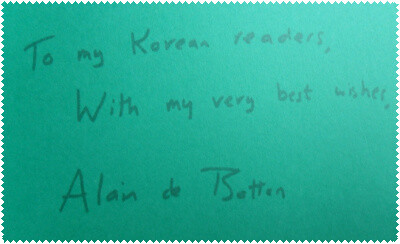 To my Korean readers,
With my very best wishes,
Alain de Botton